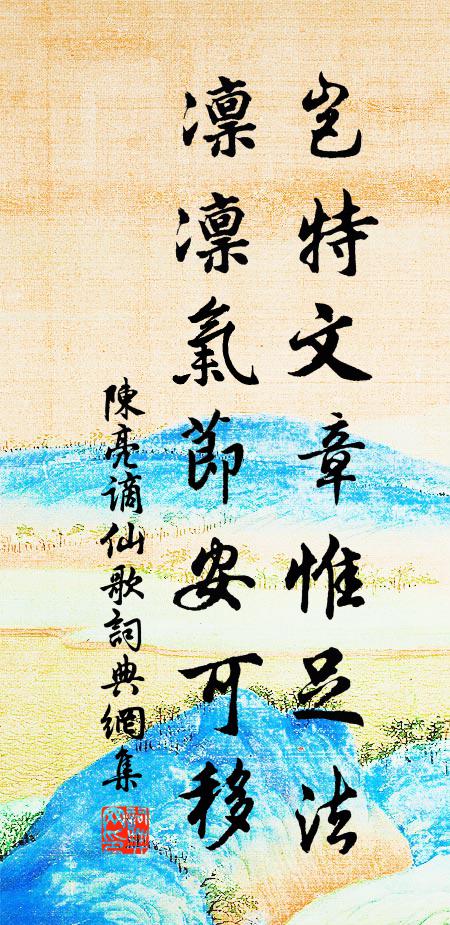 豈特文章惟足法
凛凛氣節安可移
陳亮謫仙歌詞典網集